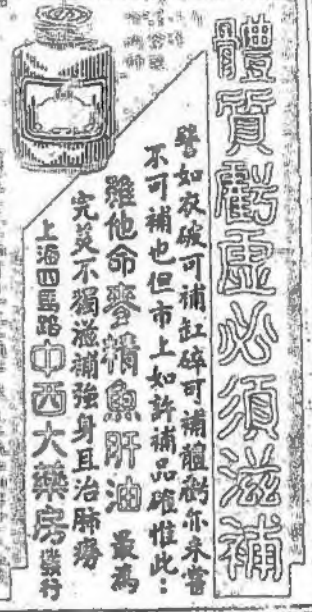 體質虧虛必須滋補
譬如衣破可補缸碎可補體虧亦未嘗
不可補也但市上如許補品確惟此：
維他命麥精魚肝油 最為
完美不獨滋補強身且治肺癆
上海四馬路中西大藥房發行